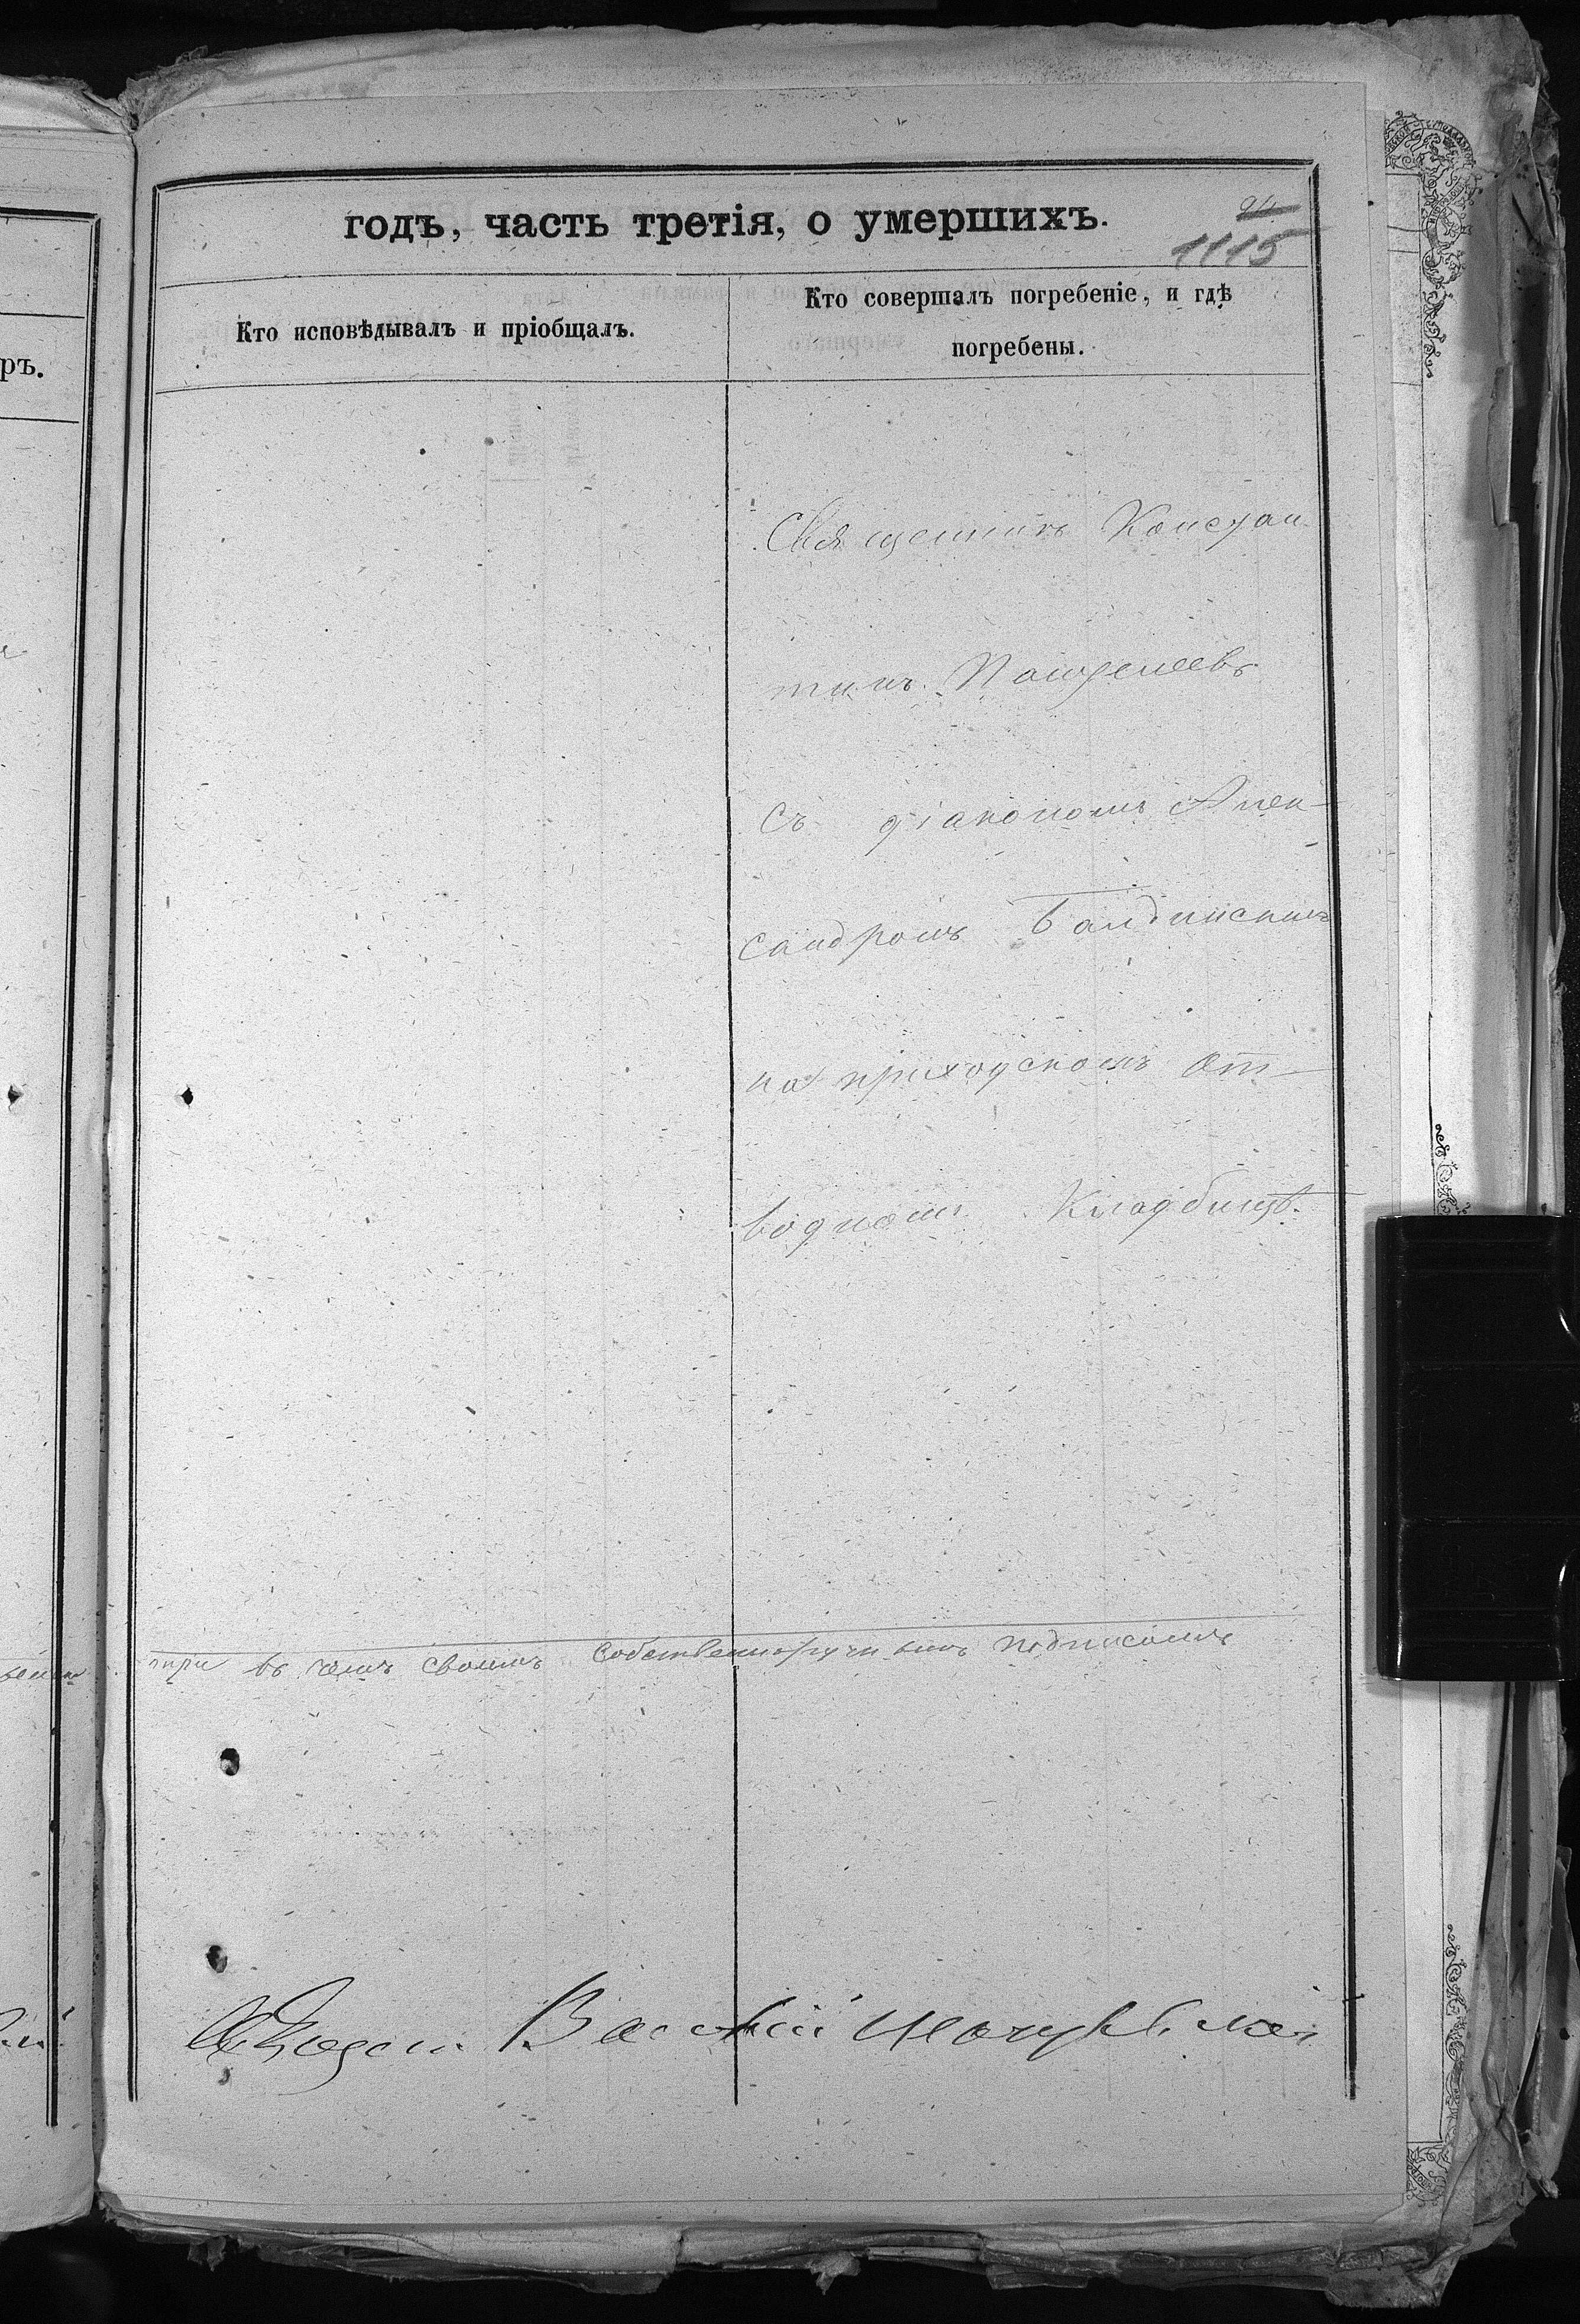 годъ, часть третія, о умершихъ.
94
1115
Кто исповѣдывалъ и пріобщалъ.
Кто совершалъ погребеніе, и гдѣ
погребены.
ръ.
Священникъ Констан
тинъ
съ діакономъ Алек-
сандромъ Балдинскимъ
на приходскомъ от-
водномъ Кладбищѣ.
въ чемъ своимъ собственноручнымъ подписомъ